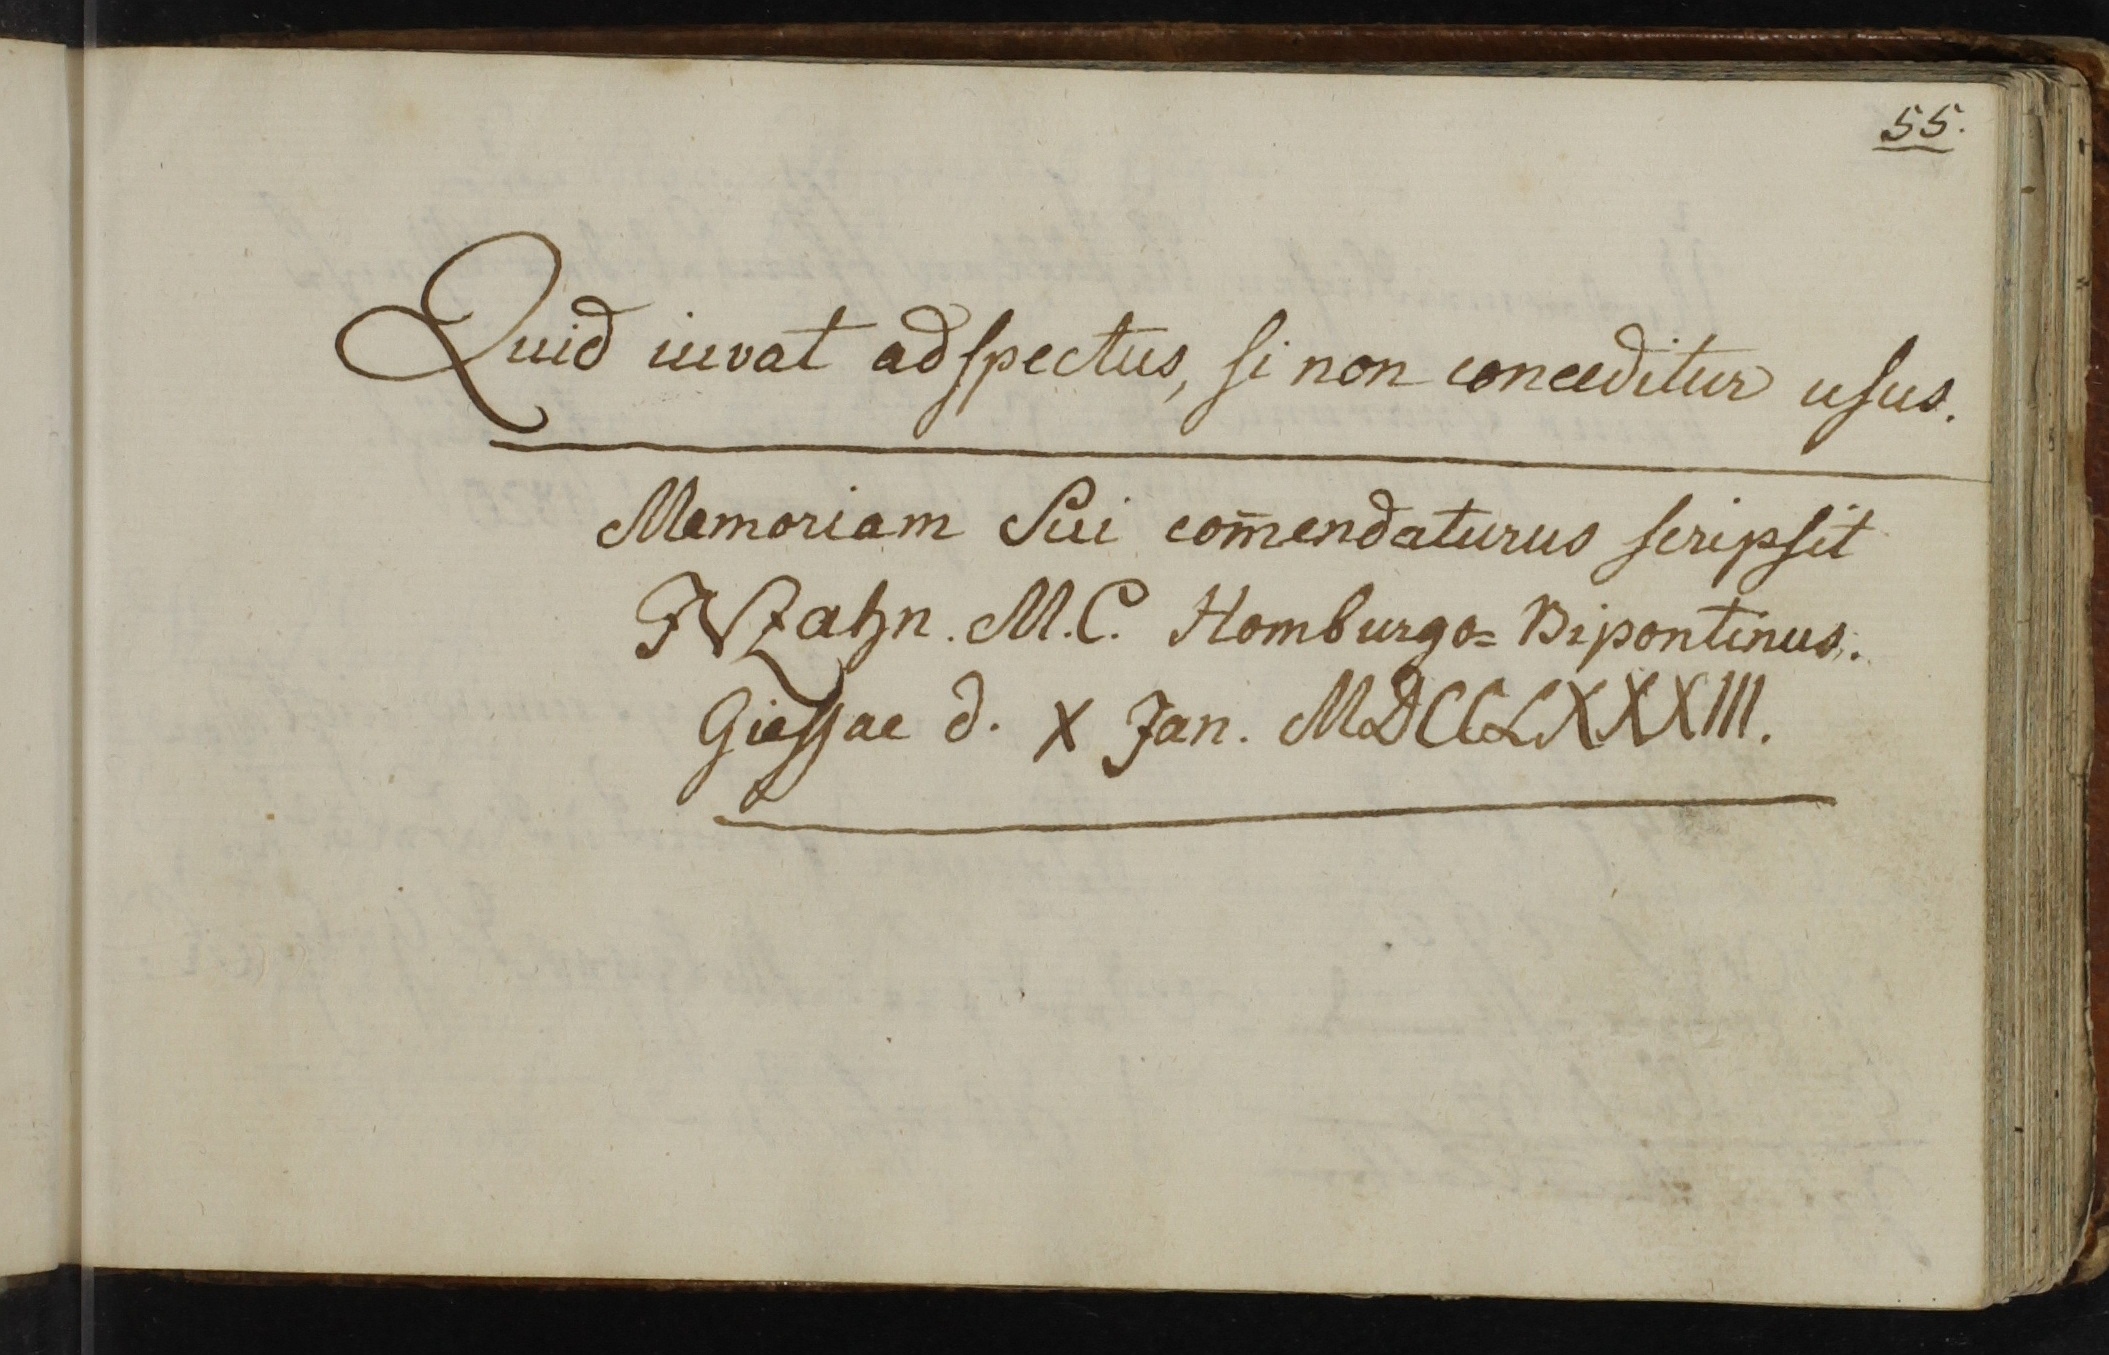 55.
Quid iuvat adspectus, si non conceditur usus.
Memoriam Sui com̄endaturus scripsit
Zahn. M.C. Homburgo= Bipontinus.
Giessae d. X Jan. MDCCLXXXIII.